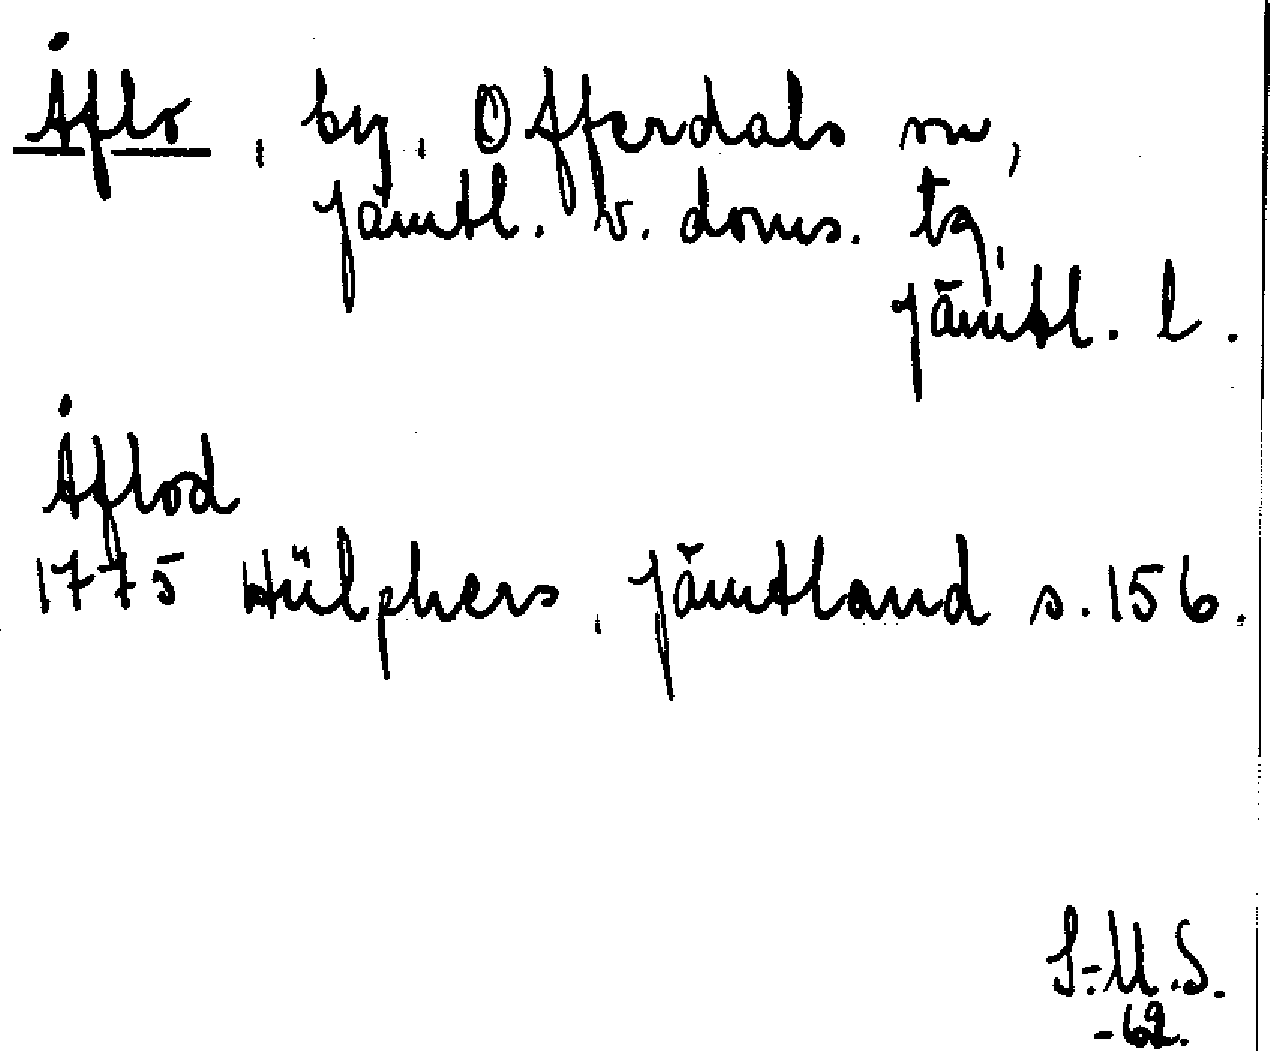 Åflo, by, Offerdals sn,
Jämtl. v. doms. tg,
Jämtl. l.
Åflod
1775 Hülphers, Jämtland s. 156.
S.-U.S.
-62.